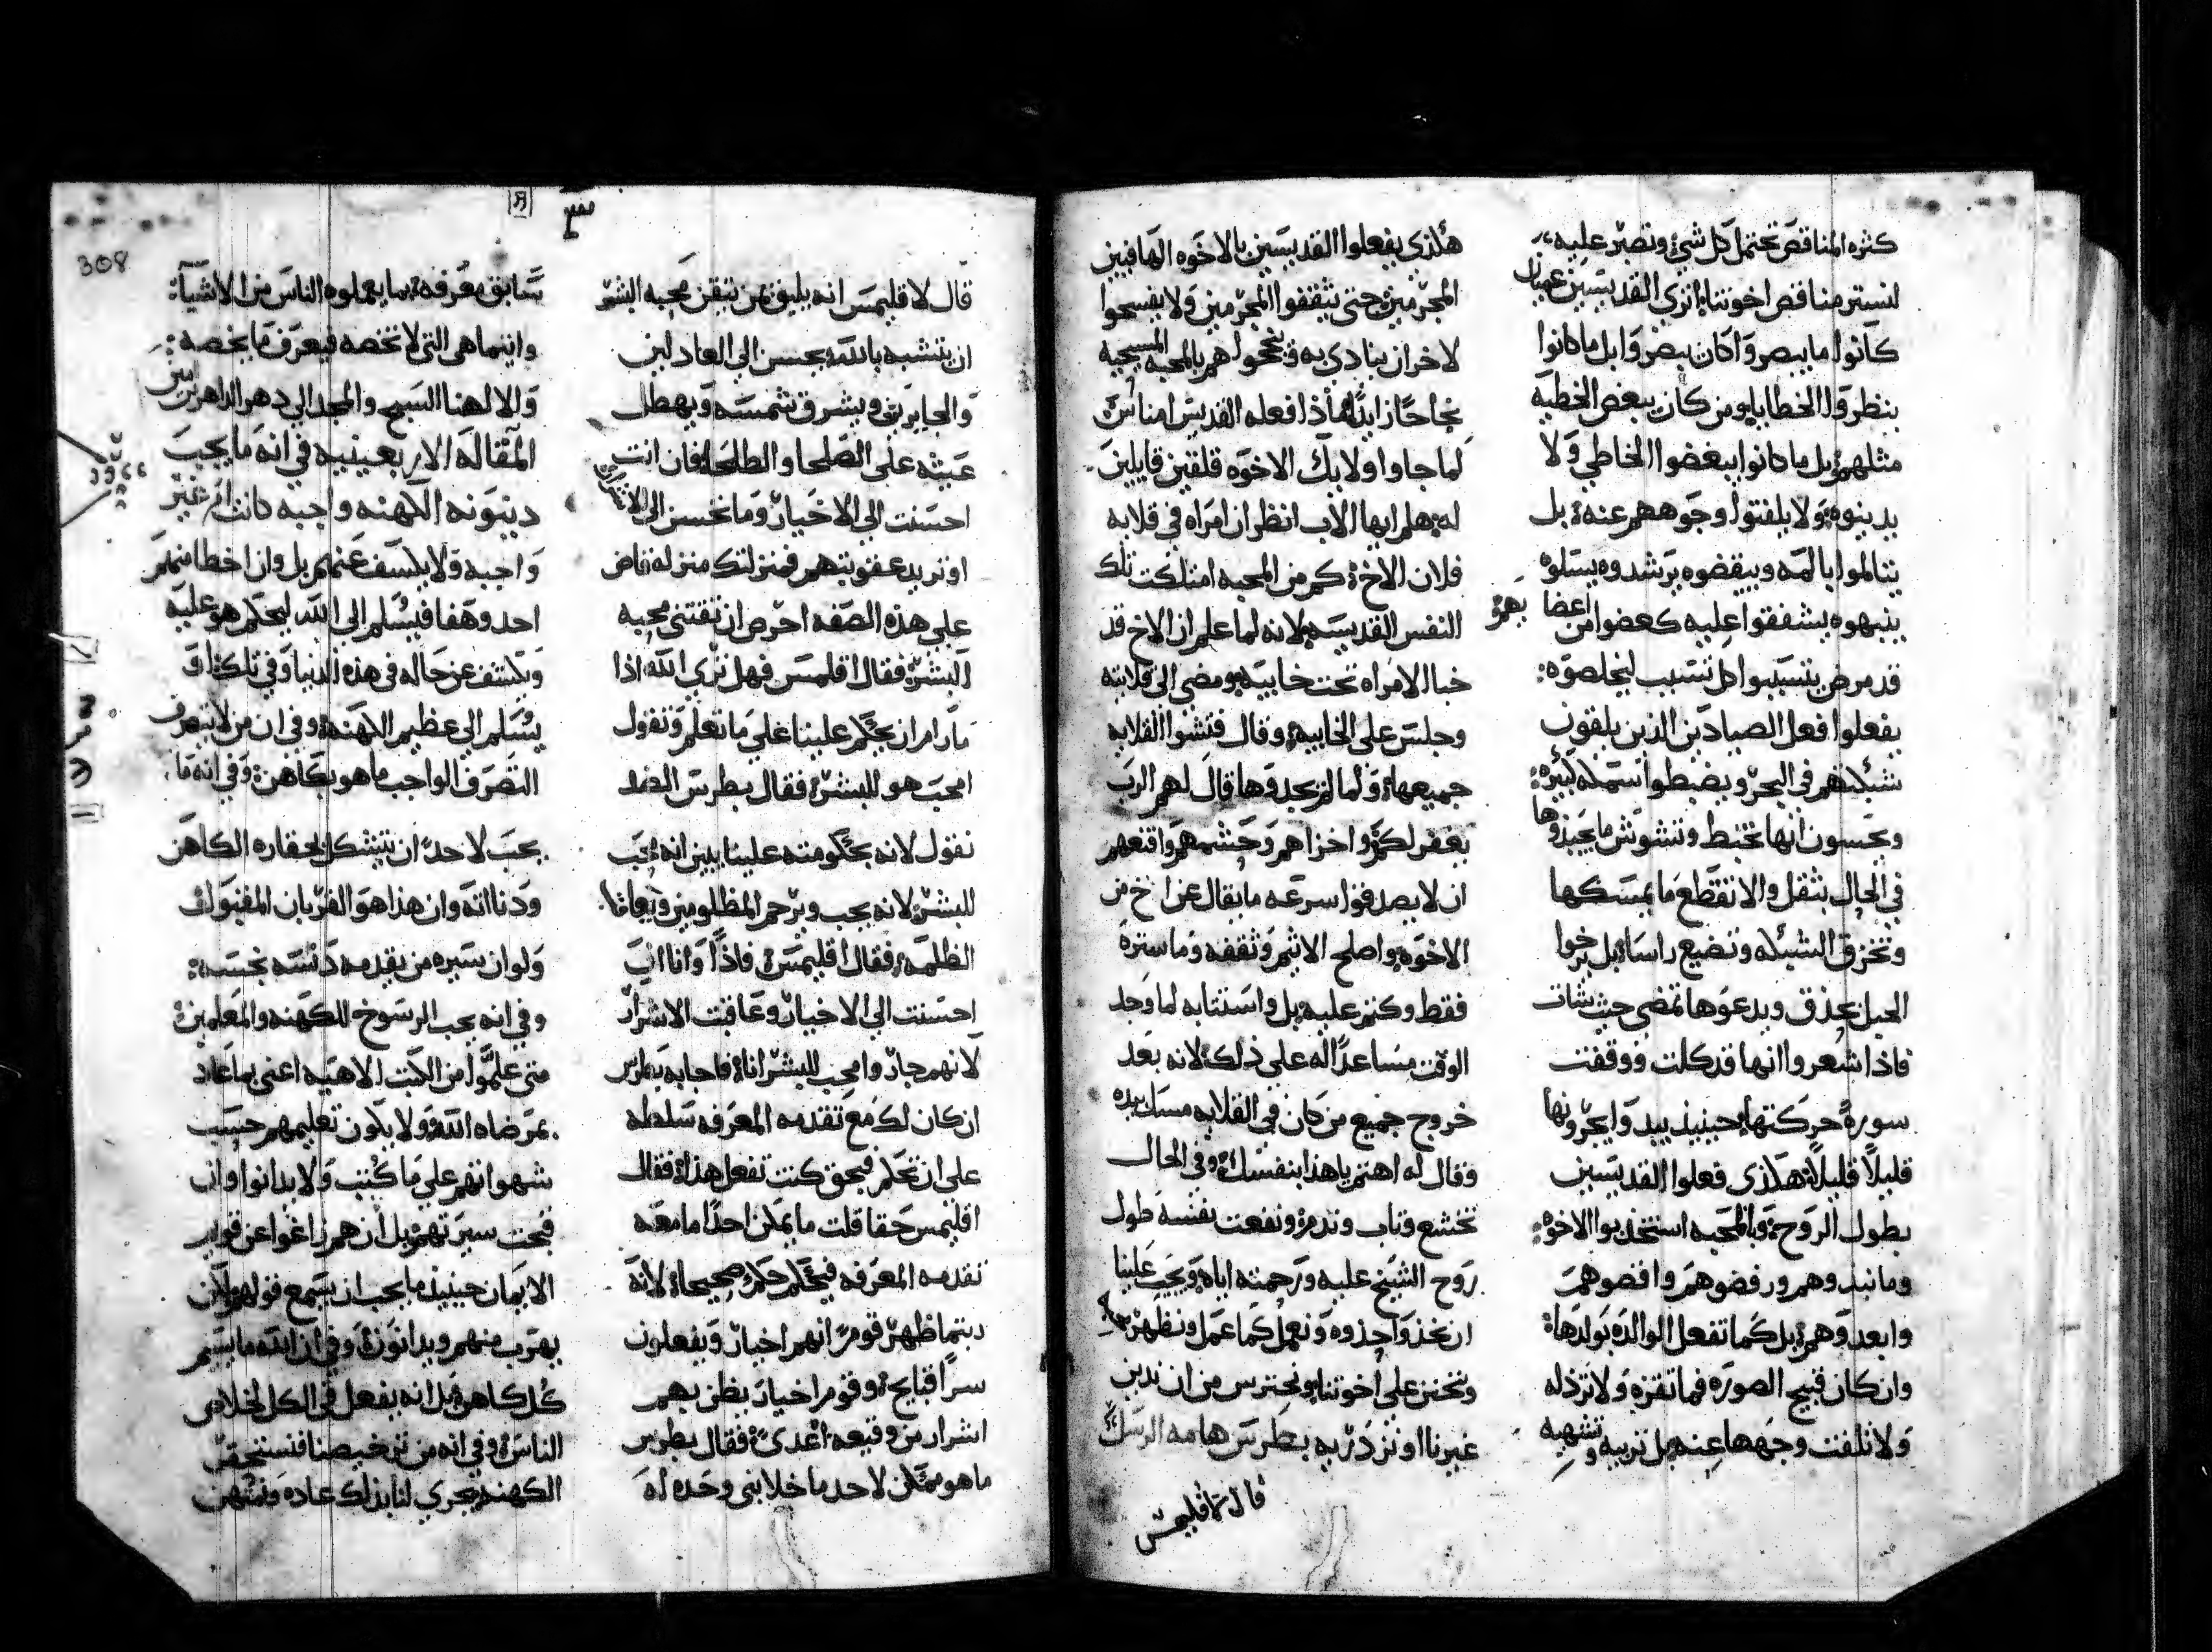 كثره المناقص تحتمل كل شي وتصبر عليه
لنستر مناقص اخوتنا اترى القديسين عميان
كانوا ما يبصروا كان يبصروا بل ما كانوا
ينظروا الخطايا ومن كان يبغض الخطيه
مثلهم بل ما كانوا يبغضوا الخاطي ولا
يدينوه ولا يلفتوا وجوههم عنه بل
يتالموا بالمه ويبغضوه يرشدوه يسلوه
ينبهوه يشفقوا عليه كعضوا من اعضا بهم
قد مرض يتسببوا كل تسبب ليخلصوه
يفعلوا فعل الصيادين الذين يلقون
شبكتهم في البحر ويضبطوا سمكه كبيره
ويحسون انها تختبط وتشوش ما يجبذوها
في الحال بثقل والا تقطع ما يمسكها
وتخزق الشبكه وتضيع راسا بل يرخوا
الحبل بحذق ويدعوها تمضي حيث شات
فاذا شعروا انها قد كلت ووقفت
سورة حركتها حينيذ يبدوا يجرونها
قليلا قليلا هكذى فعلوا القديسين
بطول الروح وبالمحبه استجذبوا الاخوه
وما نبدوهم ورفضوهم واقصوهم
وابعدوهم بل كما تفعل الوالده بولدها
وان كان قبيح الصوره فما تقزه ولا ترذله
ولا تلفت وجهها عنه بل تربيه وتشهيه
هكذى يفعلوا القديسين بالاخوه الهافيين
المجرمين حتى يثقفوا المجرمين ولا يفسحوا
لاخر ان يتادى به وينجحوا هم بالمحبه المسيحيه
نجاحا زايدا ماذا فعله القديس امناس
لما جاوا اوليك الاخوه قلقين قايلين
له هلم ايها الاب انظر ان امراه في قلايه
فلان الاخ كم من المحبه امتلكت تلك
النفس القديسه لانه لما علم ان الاخ قد
خبا الامراه تحت خابيه ومضى الى قلايته
وجلس على الخابيه وقال فتشوا القلايه
جميعها ولما لم يجدوها قال لهم الرب
يغفر لكم واخزاهم وحشمهم واقنعهم
ان لا يصدقوا سرعه ما يقال عن اخ من
الاخوه واصلح الاثيم وثقفه وما ستره
فقط وكتم عليه بل واستتابه لما وجد
الوقت مساعدا له على ذلك لانه بعد
خروج جميع من كان في القلايه مسك بيده
وقال له اهتم يا هذا بنفسك وفي الحال
تخشع وتاب وندم ونفعت نفسه طول
روح الشيخ عليه ورحمته اياه ويجب علينا
ان نخذوا حذوه ونعمل كما عمل ونظهر
ونتحنن على اخوتنا ونحترس من ان ندين
غيرنا او نزدرى به بطرس هامه الرسل
قال لاقليمس
308
قال لاقليمس انه يليق بمن يتقن محبه البشر
ان يتشبه بالله يحسن الى العادلين
والجايرين ويشرق شمسه ويهطل
غيثه على الصلحا والطلحا فان انت
احسنت الى الاخيار وما تحسن الى الاشرار
او تريد عقوبتهم فمنزلتك منزله قاض
على هذه الصفه احرص ان تقتني محبه
البشر فقال اقلمس فهل ترى الله اذا
ما رام ان يحكم علينا على ما تعلم وتقول
امحب هو للبشر فقال بطرس الضد
نقول لانه بحكومته علينا يبين انه محب
للبشر لانه يحب ويرحم المظلومين ويعاقب
الظلمه فقال اقليمس فاذا وانا ان
احسنت الى الاخيار وعاقبت الاشرار
لانهم جاروا محب للبشر انا فاجابه بطرس
ان كان لك مع تقدمه المعرفه سلطه
على ان تحكم فبحق كنت تفعل هذا فقال
اقليمس حقا قلت ما يمكن احدا ما معه
تقدمه المعرفه فيحكم حكم صحيحا لانه
ربتما ظهر قوم انهم اخيار ويفعلون
سرا قبايح وقوم اخيار يظن بهم
اشرار من وقيعه اعدى فقال بطرس
ما هو ممكن لاحد ما خلا بني وحده له
سابق معرفه بما يعملوه الناس من الاشيا
واينما هي التي لا تخصه فيعرف ما يخصه
ولالاهنا السبح والمجد الى دهر الداهرين امين
المقاله الاربعينيه في انه ما يجب
دينونه الكهنه واجبه كانت ام غير
واجبه ولا يكشف عنهم بل وان اخطا منهم
احد وهفا فيسلم الى الله ليحكم هو عليه
ويكشف عن حاله في هذه الدنيا وفي تلك او
يسلم الى عظيم الكهنه وفي ان من لا يتصرف
التصرف الواجب ما هو بكاهن وفي انه ما
يجب لاحد ان يتشكل لحقاره الكاهن
ودناانه وان هذا هو القربان المقبول
ولو ان سيره من يقدمه دنسه نجسه
وفي انه يجب الرسوخ للكهنه والمعلمين
متى علموا من الكتب الالاهيه اعني بما عاد
بمرضاه الله ولا يكون تعليمهم حسب
شهواتهم على ما كتب ولا يدانوا وان
قبحت سيرتهم بل ان هم زاغوا عن قويم
الايمان حينيذ ما يجب ان يسمع قولهم لكن
يهرب منهم ويدانون وفي ان الله ما يسيم
كل كاهن بل انه يفعل في الكل لخلاص
الناس وفي انه من ترخيصنا فنستحقر
الكهنه تجري لنا بذلك عاده ونمتهن